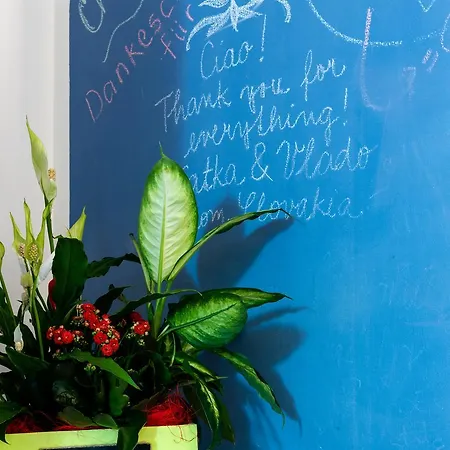 Dankesc
für
Ciao!
Thank you for
everything!
atka & Vlado
om Slovakia